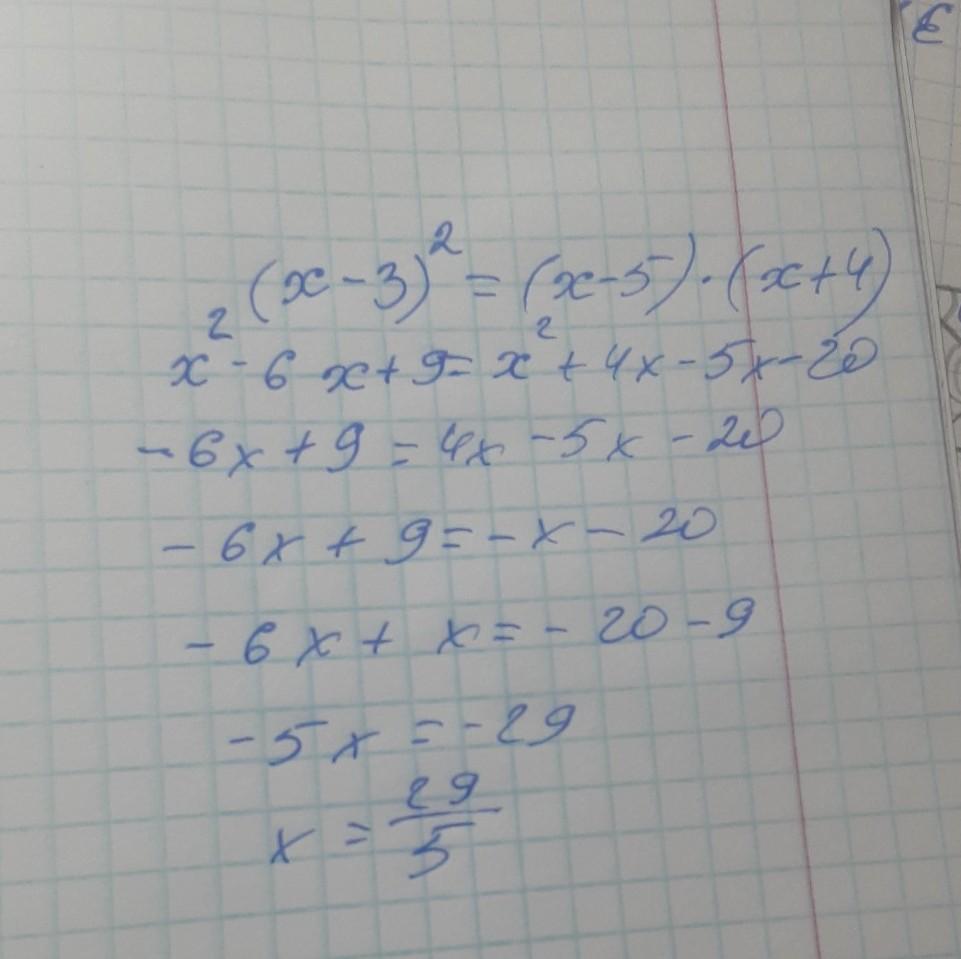 (x-3)² = (x-5)·(x+4)
x² - 6x + 9 = x² + 4x - 5x - 20
-6x + 9 = 4x - 5x - 20
-6x + 9 = -x - 20
-6x + x = -20 - 9
-5x = -29
x = 29/5